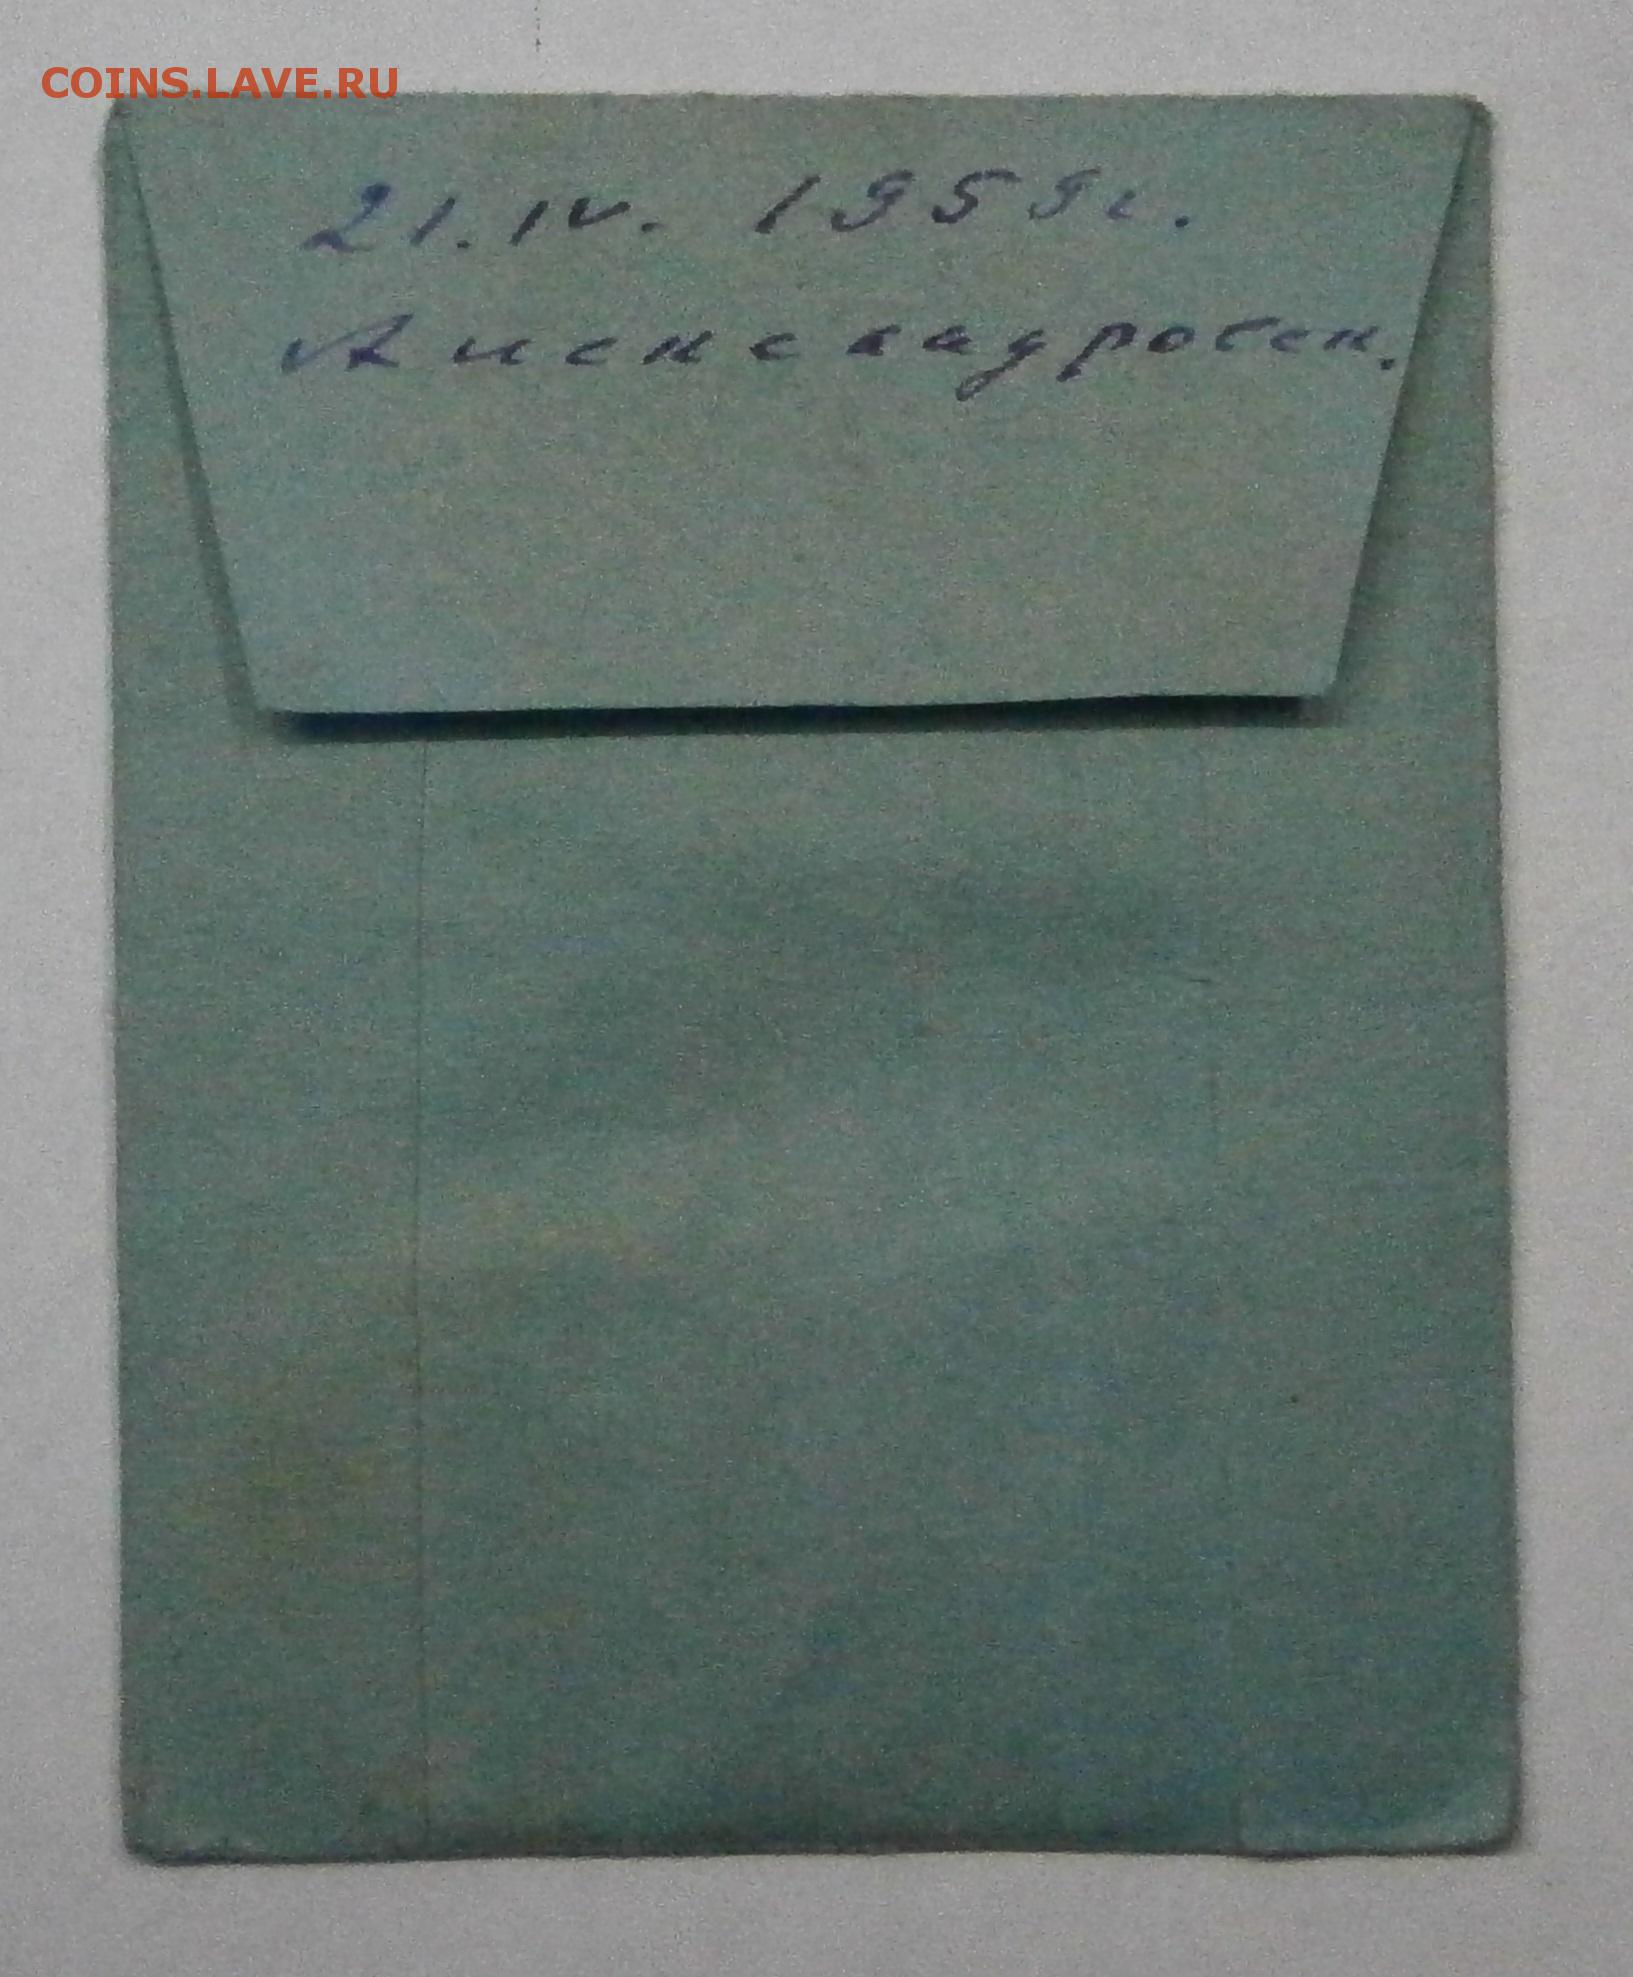 COINS.LAVE.RU
21. IV. 1959г.
Александровск.